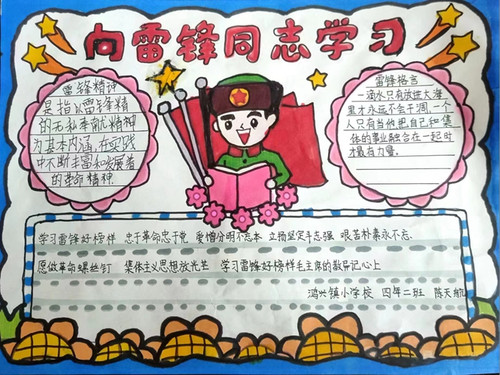 向雷锋同志学习
雷锋精神
是指以雷锋精
的无私奉献精神
为基本内涵,在实践
中不断丰富和发展着
的革命精神
雷锋格言
一滴水只有放进大海
里才永远不会干涸,一个
人只有当他把自己和集
体的事业融合在一起时
才最有力量。
学习雷锋好榜样 忠于革命忠于党 爱憎分明不忘本 立场坚定斗志强 艰苦朴素永不忘
愿做革命螺丝钉 集体主义思想放光芒 学习雷锋好榜样毛主席的教导记心上
鸿兴镇小学校 四年二班 陈天航